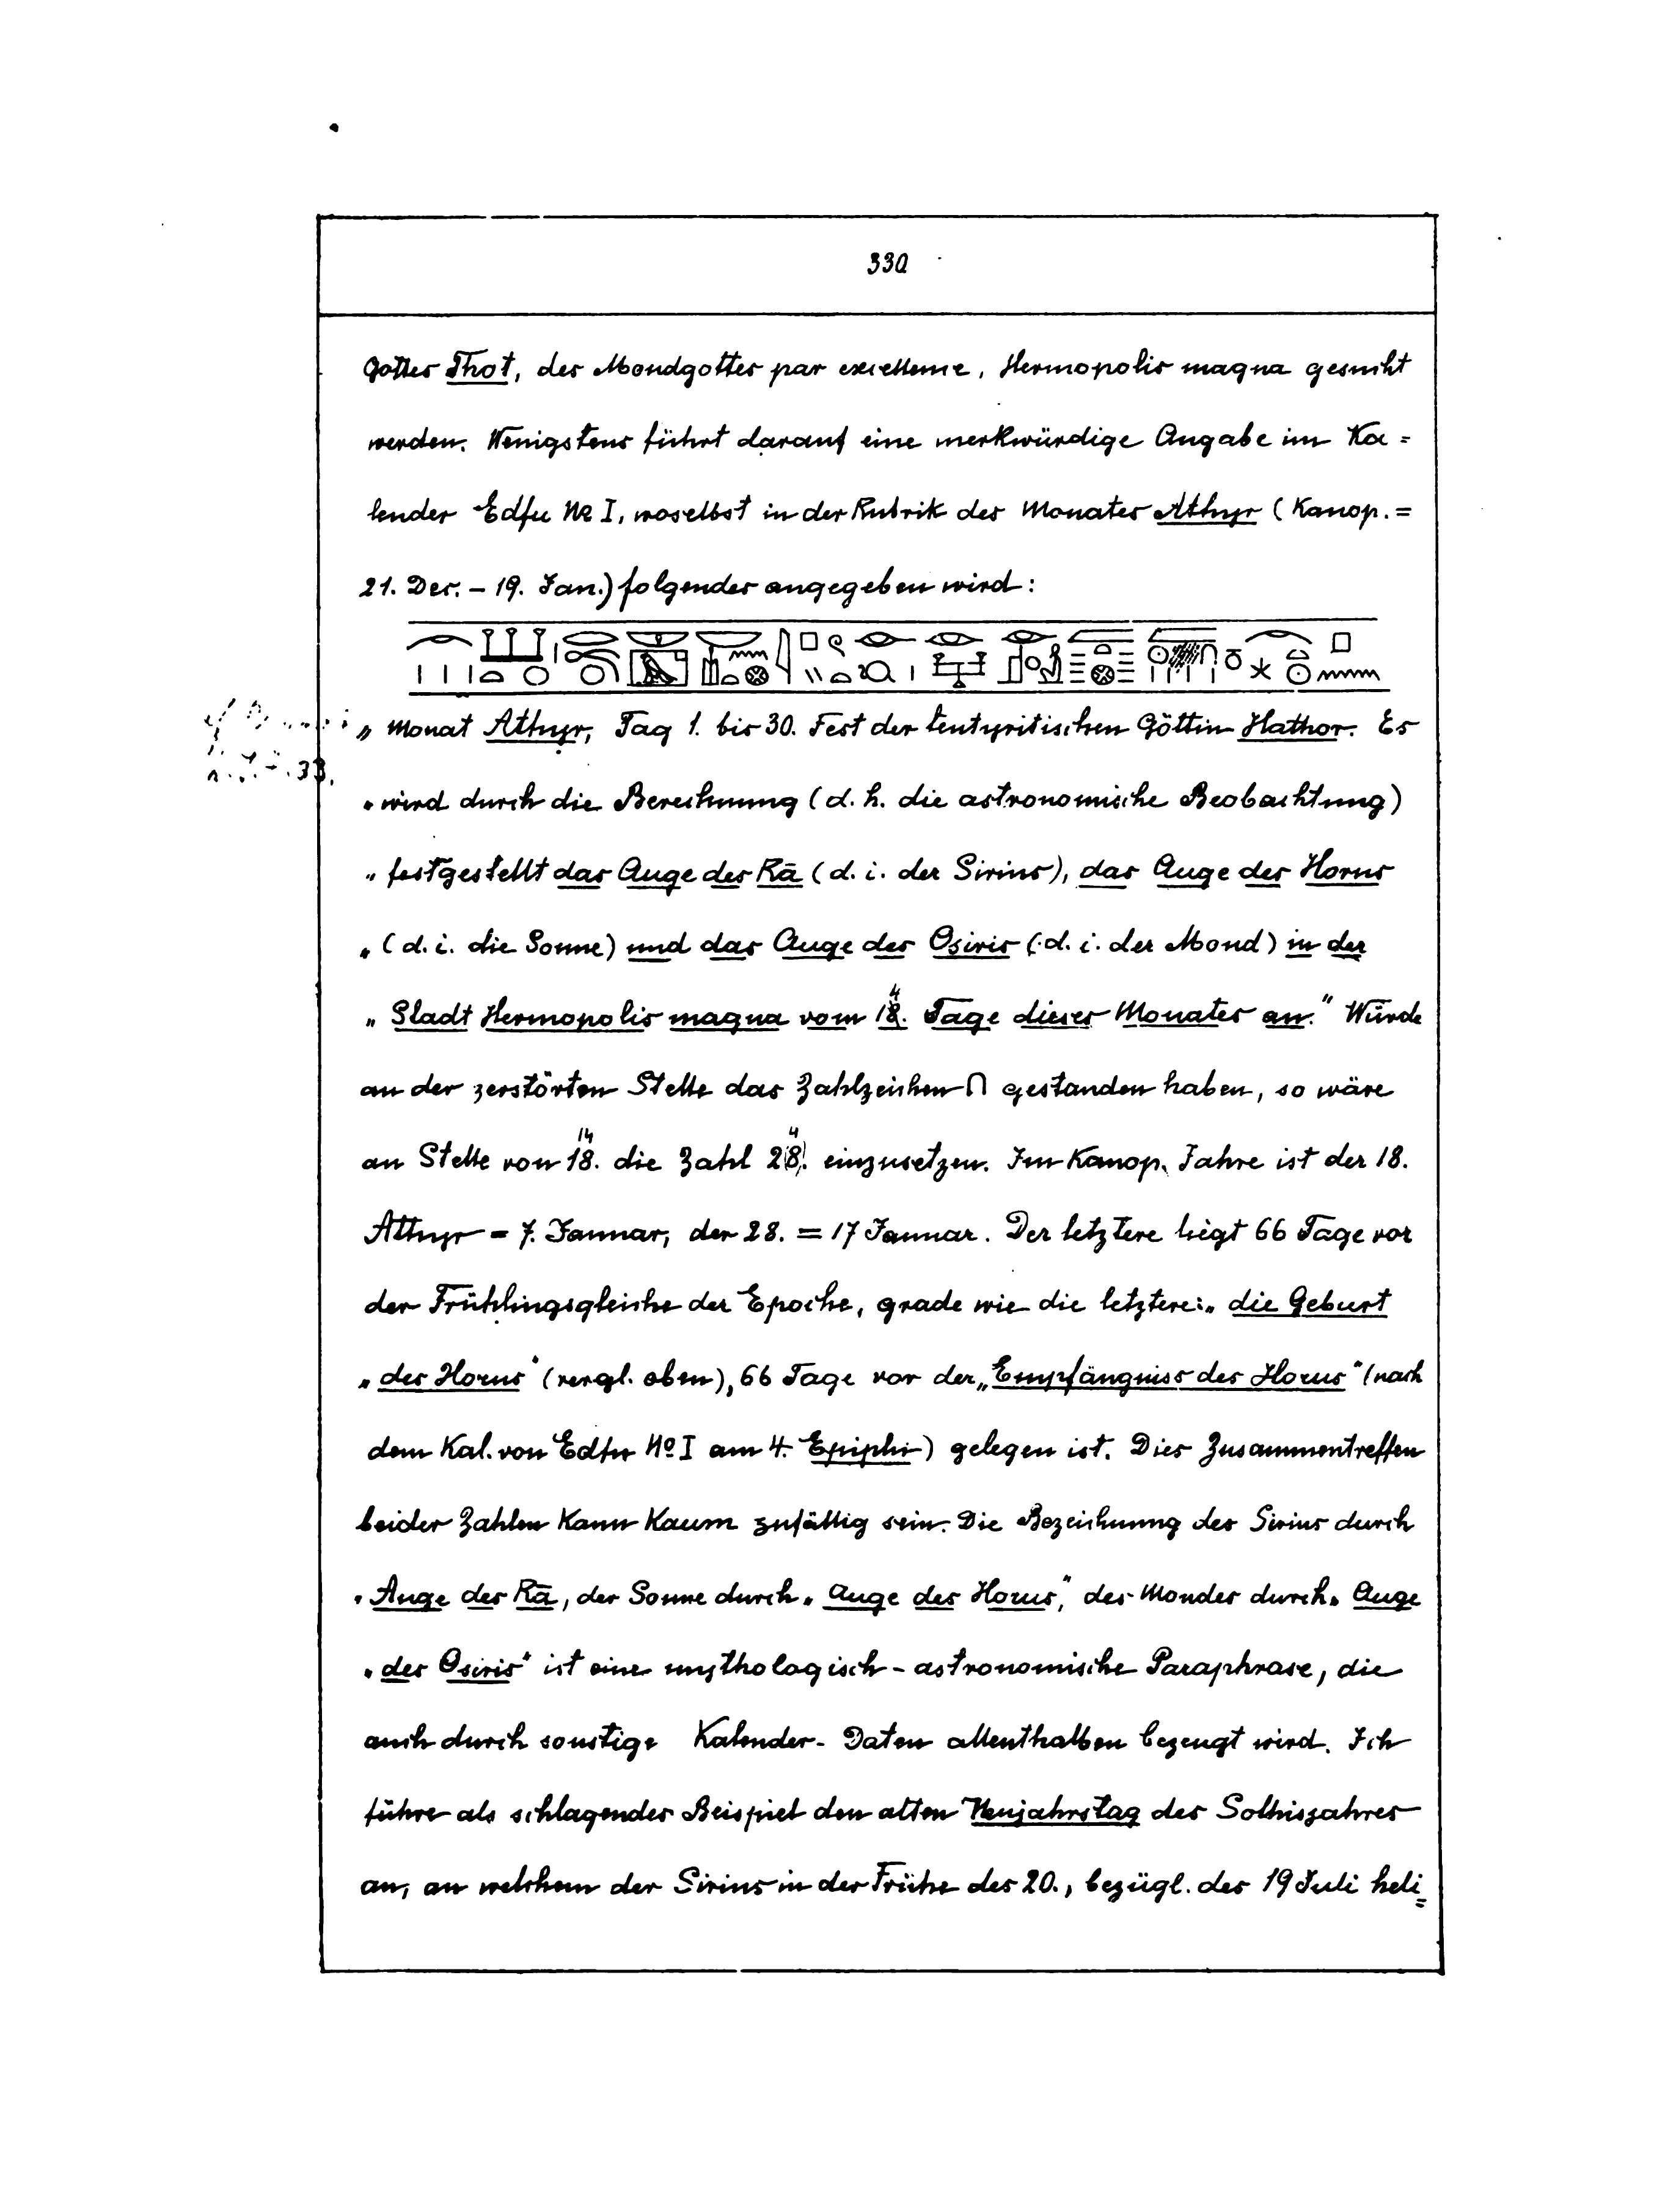 330
Gottes Thot, des Mondgottes par excellence, Hermopolis magna gesucht
werden. Wenigstens führt darauf eine merkwürdige Angabe im Ka=
lender Edfu № I, woselbst in der Rubrik des Monates Athyr (Kanop. =
21. Dec. – 19. Jan.) folgendes angegeben wird:
„ Monat Athyr, Tag 1. bis 30. Fest der tentyritischen Göttin Hathor. Es
„ wird durch die Berechnung (d. h. die astronomische Beobachtung)
„ festgestellt das Auge des Rā (d. i. der Sirius), das Auge des Horus
„ (d. i. die Sonne) und das Auge des Osiris (d. i. der Mond) in der
„ Stadt Hermopolis magna vom 18. Tage dieses Monates an." Würde
an der zerstörten Stelle das Zahlzeichen ∩ gestanden haben, so wäre
an Stelle von 18. die Zahl 28. einzusetzen. Im Kanop. Jahre ist der 18.
Athyr = 7. Januar, der 28. = 17 Januar. Der letztere liegt 66 Tage vor
der Frühlingsgleiche der Epoche, grade wie die letztere: „ die Geburt
„ des Horus" (vergl. oben), 66 Tage vor der „Empfängniss des Horus" (nach
dem Kal. von Edfu № I am 4. Epiphi) gelegen ist. Dies Zusammentreffen
beider Zahlen kann kaum zufällig sein. Die Bezeichnung des Sirius durch
„ Auge des Rā, der Sonne durch „ Auge des Horus," des Mondes durch „ Auge
„ des Osiris" ist eine mythologisch-astronomische Paraphrase, die
auch durch sonstige Kalender-Daten allenthalben bezeugt wird. Ich
führe als schlagendes Beispiel den alten Neujahrstag des Sothisjahres
an, an welchem der Sirius in der Frühe des 20., bezügl. des 19 Juli heli=